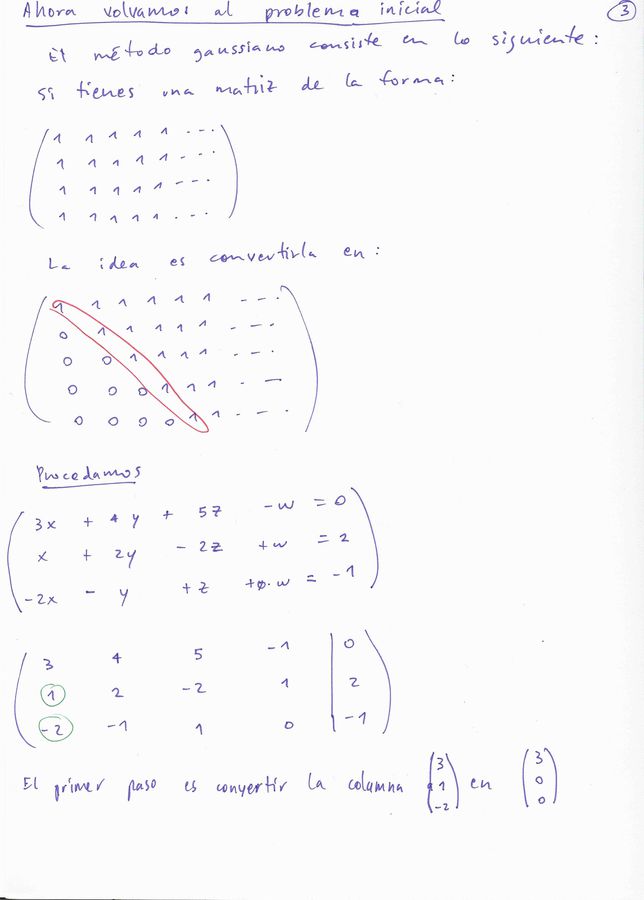 Ahora volvamos al problema inicial
3
El método gaussiano consiste en lo siguiente:
si tienes una matriz de la forma:
1 1 1 1 1 ---
1 1 1 1 1 ---
1 1 1 1 1 ---
1 1 1 1 1 ---
La idea es convertirla en:
1 1 1 1 1 1 ---
0 1 1 1 1 1 ---
0 0 1 1 1 1 ---
0 0 0 1 1 1 - --
0 0 0 0 1 1 ---
Procedamos
3x + 4y + 5z -w = 0
x + 2y - 2z +w = 2
-2x - y +z +0·w = -1
3 4 5 -1 | 0
1 2 -2 1 | 2
-2 -1 1 0 | -1
El primer paso es convertir la columna (3 1 -2) en (3 0 0)